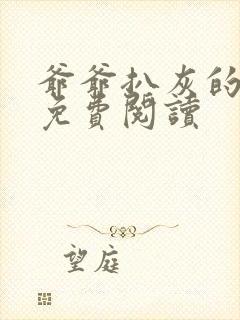 爺爺扒灰的
免費閱讀
望庭